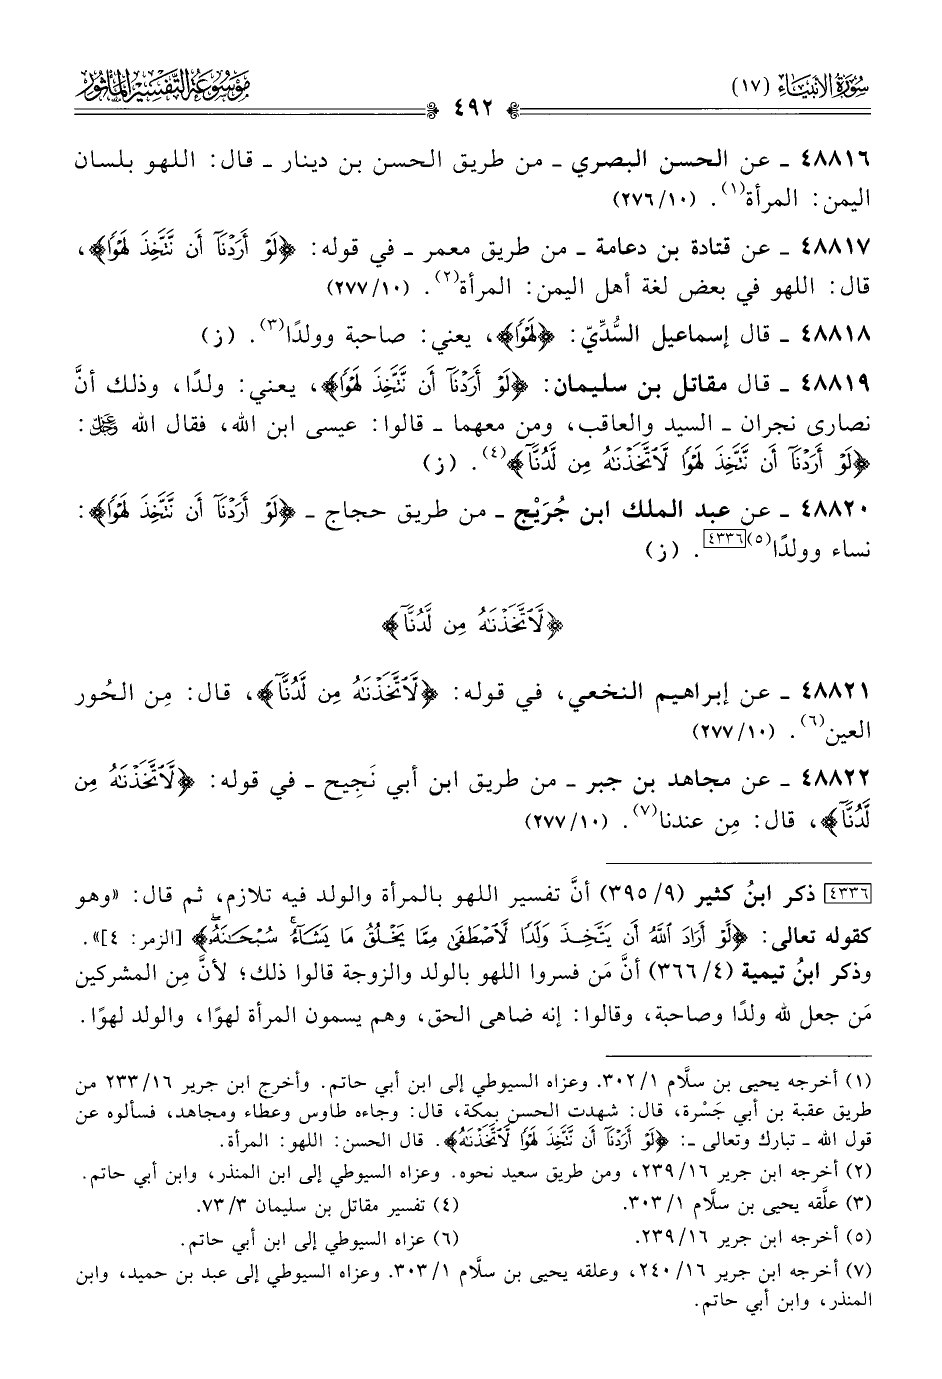 سُورَةُ الأَنْبِيَاء (١٧)
٤٩٢
مَوْسُوعَةُ التَّفْسِيرِ المَأْثُور
٤٨٨١٦ ـ عن الحسن البصري ـ من طريق الحسن بن دينار ـ قال: اللهو بلسان
اليمن: المرأة(١). (٢٧٦/١٠)
٤٨٨١٧ ـ عن قتادة بن دعامة ـ من طريق معمر ـ في قوله: ﴿لَوْ أَرَدْنَآ أَن نَّتَّخِذَ لَهْوًا﴾،
قال: اللهو في بعض لغة أهل اليمن: المرأة(٢). (٢٧٧/١٠)
٤٨٨١٨ ـ قال إسماعيل السُّدِّيّ: ﴿لَهْوًا﴾، يعني: صاحبة وولدًا(٣). (ز)
٤٨٨١٩ ـ قال مقاتل بن سليمان: ﴿لَوْ أَرَدْنَآ أَن نَّتَّخِذَ لَهْوًا﴾، يعني: ولدًا، وذلك أنَّ
نصارى نجران ـ السيد والعاقب، ومن معهما ـ قالوا: عيسى ابن الله، فقال الله ﷻ:
﴿لَوْ أَرَدْنَآ أَن نَّتَّخِذَ لَهْوًا لَّٱتَّخَذْنَـٰهُ مِن لَّدُنَّآ﴾(٤). (ز)
٤٨٨٢٠ ـ عن عبد الملك ابن جُرَيْج ـ من طريق حجاج ـ ﴿لَوْ أَرَدْنَآ أَن نَّتَّخِذَ لَهْوًا﴾:
نساء وولدًا(٥)[٤٣٣٦]. (ز)
﴿لَّٱتَّخَذْنَـٰهُ مِن لَّدُنَّآ﴾
٤٨٨٢١ ـ عن إبراهيم النخعي، في قوله: ﴿لَّٱتَّخَذْنَـٰهُ مِن لَّدُنَّآ﴾، قال: مِن الحُور
العين(٦). (٢٧٧/١٠)
٤٨٨٢٢ ـ عن مجاهد بن جبر ـ من طريق ابن أبي نَجِيح ـ في قوله: ﴿لَّٱتَّخَذْنَـٰهُ مِن
لَّدُنَّآ﴾، قال: مِن عندنا(٧). (٢٧٧/١٠)
[٤٣٣٦] ذكر ابنُ كثير (٣٩٥/٩) أنَّ تفسير اللهو بالمرأة والولد فيه تلازم، ثم قال: «وهو
كقوله تعالى: ﴿لَّوْ أَرَادَ ٱللَّهُ أَن يَتَّخِذَ وَلَدًا لَّٱصْطَفَىٰ مِمَّا يَخْلُقُ مَا يَشَآءُ ۚ سُبْحَـٰنَهُۥ﴾ [الزمر: ٤]».
وذكر ابنُ تيمية (٣٦٦/٤) أنَّ مَن فسروا اللهو بالولد والزوجة قالوا ذلك؛ لأنَّ مِن المشركين
مَن جعل لله ولدًا وصاحبة، وقالوا: إنه ضاهى الحق، وهم يسمون المرأة لهوًا، والولد لهوًا.
(١) أخرجه يحيى بن سلَّام ٣٠٢/١. وعزاه السيوطي إلى ابن أبي حاتم. وأخرج ابن جرير ٢٣٣/١٦ من
طريق عقبة بن أبي جَسْرة، قال: شهدت الحسن بمكة، قال: وجاءه طاوس وعطاء ومجاهد، فسألوه عن
قول الله ـ تبارك وتعالى ـ: ﴿لَوْ أَرَدْنَآ أَن نَّتَّخِذَ لَهْوًا لَّٱتَّخَذْنَـٰهُ﴾. قال الحسن: اللهو: المرأة.
(٢) أخرجه ابن جرير ٢٣٩/١٦، ومن طريق سعيد نحوه. وعزاه السيوطي إلى ابن المنذر، وابن أبي حاتم.
(٣) علَّقه يحيى بن سلَّام ٣٠٣/١. (٤) تفسير مقاتل بن سليمان ٧٣/٣.
(٥) أخرجه ابن جرير ٢٣٩/١٦. (٦) عزاه السيوطي إلى ابن أبي حاتم.
(٧) أخرجه ابن جرير ٢٤٠/١٦، وعلقه يحيى بن سلَّام ٣٠٣/١. وعزاه السيوطي إلى عبد بن حميد، وابن
المنذر، وابن أبي حاتم.